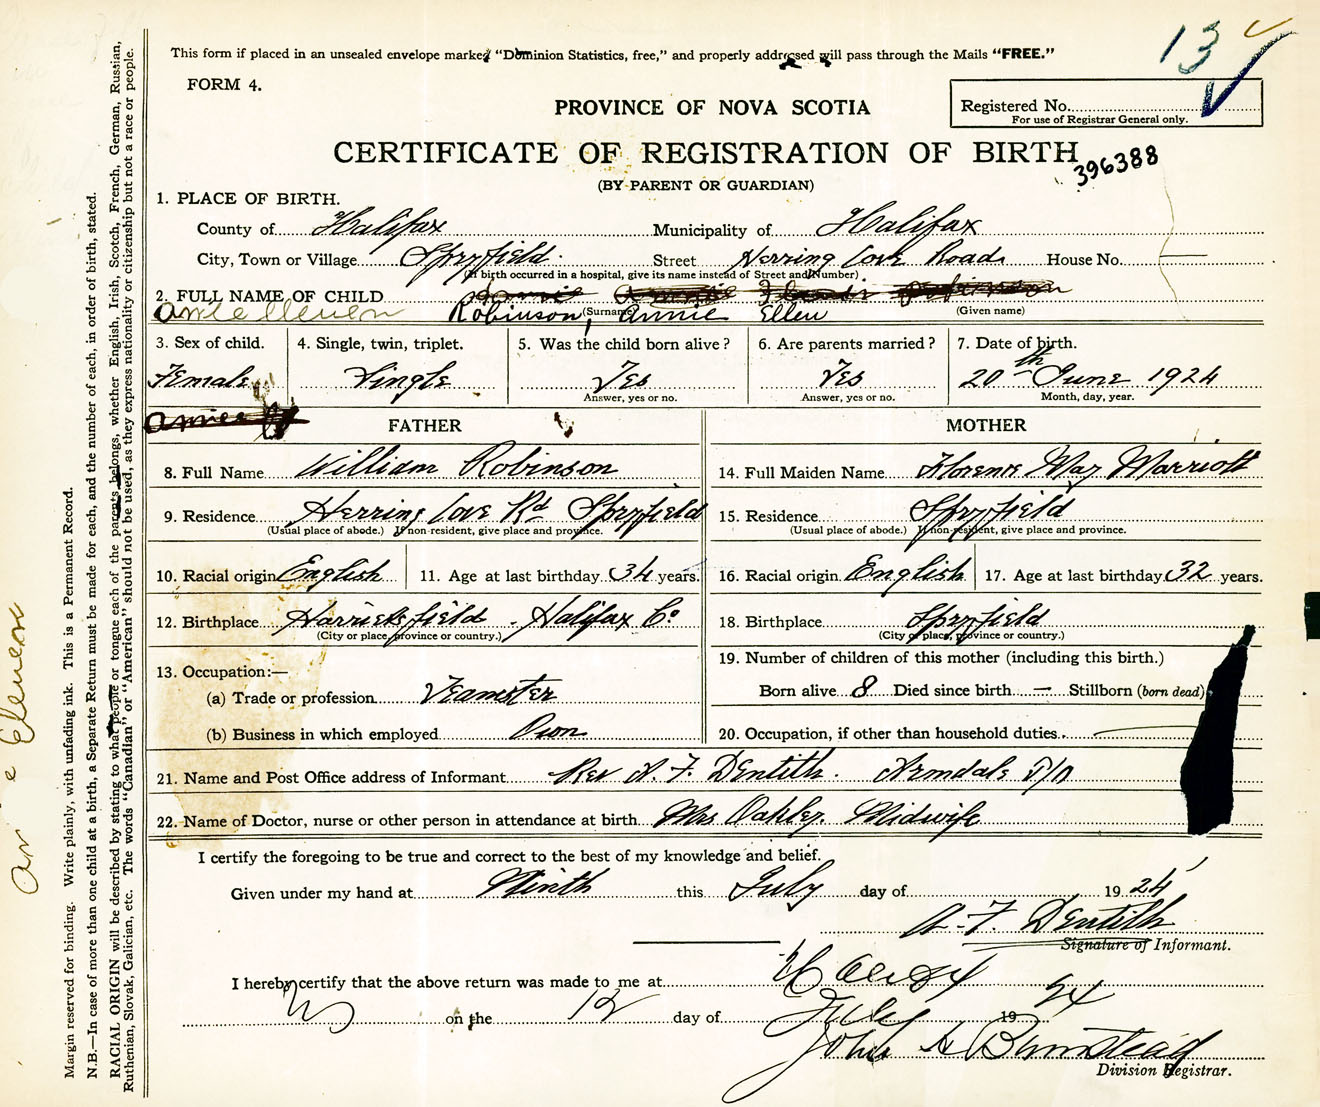 13
This form if placed in an unsealed envelope marked "Dominion Statistics, free," and properly addressed will pass through the Mails "FREE."
FORM 4.
PROVINCE OF NOVA SCOTIA
Registered No.
For use of Registrar General only.
CERTIFICATE OF REGISTRATION OF BIRTH
396388
(BY PARENT OR GUARDIAN)
1. PLACE OF BIRTH.
County of Halifax Municipality of Halifax
City, Town or Village Spryfield Street Herring Cove Road House No. —
(If birth occurred in a hospital, give its name instead of Street and Number)
2. FULL NAME OF CHILD
Robinson, Annie Ellen
(Surname) (Given name)
3. Sex of child. 4. Single, twin, triplet. 5. Was the child born alive? 6. Are parents married? 7. Date of birth.
Female Single Yes Yes 20th June 1924
Answer, yes or no. Answer, yes or no. Month, day, year.
FATHER MOTHER
8. Full Name William Robinson 14. Full Maiden Name Florence May Marriott
9. Residence Herring Cove Rd Spryfield 15. Residence Spryfield
(Usual place of abode.) If non-resident, give place and province. (Usual place of abode.) If non-resident, give place and province.
10. Racial origin English 11. Age at last birthday 34 years. 16. Racial origin English 17. Age at last birthday 32 years.
12. Birthplace Harrietsfield. Halifax Co. 18. Birthplace Spryfield
(City or place, province or country.) (City or place, province or country.)
13. Occupation:— 19. Number of children of this mother (including this birth.)
(a) Trade or profession Teamster Born alive 8 Died since birth — Stillborn (born dead)
(b) Business in which employed Own 20. Occupation, if other than household duties.
21. Name and Post Office address of Informant Rev A. F. Dentith. Armdale P/O
22. Name of Doctor, nurse or other person in attendance at birth Mrs Oakley Midwife
I certify the foregoing to be true and correct to the best of my knowledge and belief.
Given under my hand at Ninth this July day of 1924
A. F. Dentith
Signature of Informant.
I hereby certify that the above return was made to me at
NS on the 12 day of July 1924
John A Bumstead
Division Registrar.
Margin reserved for binding. Write plainly, with unfading ink. This is a Permanent Record.
N.B.—In case of more than one child at a birth, a Separate Return must be made for each, and the number of each, in order of birth, stated.
RACIAL ORIGIN will be described by stating to what people or tongue each of the parents belongs, whether English, Irish, Scotch, French, German, Russian,
Ruthenian, Slovak, Galician, etc. The words "Canadian" or "American" should not be used, as they express nationality or citizenship but not a race or people.